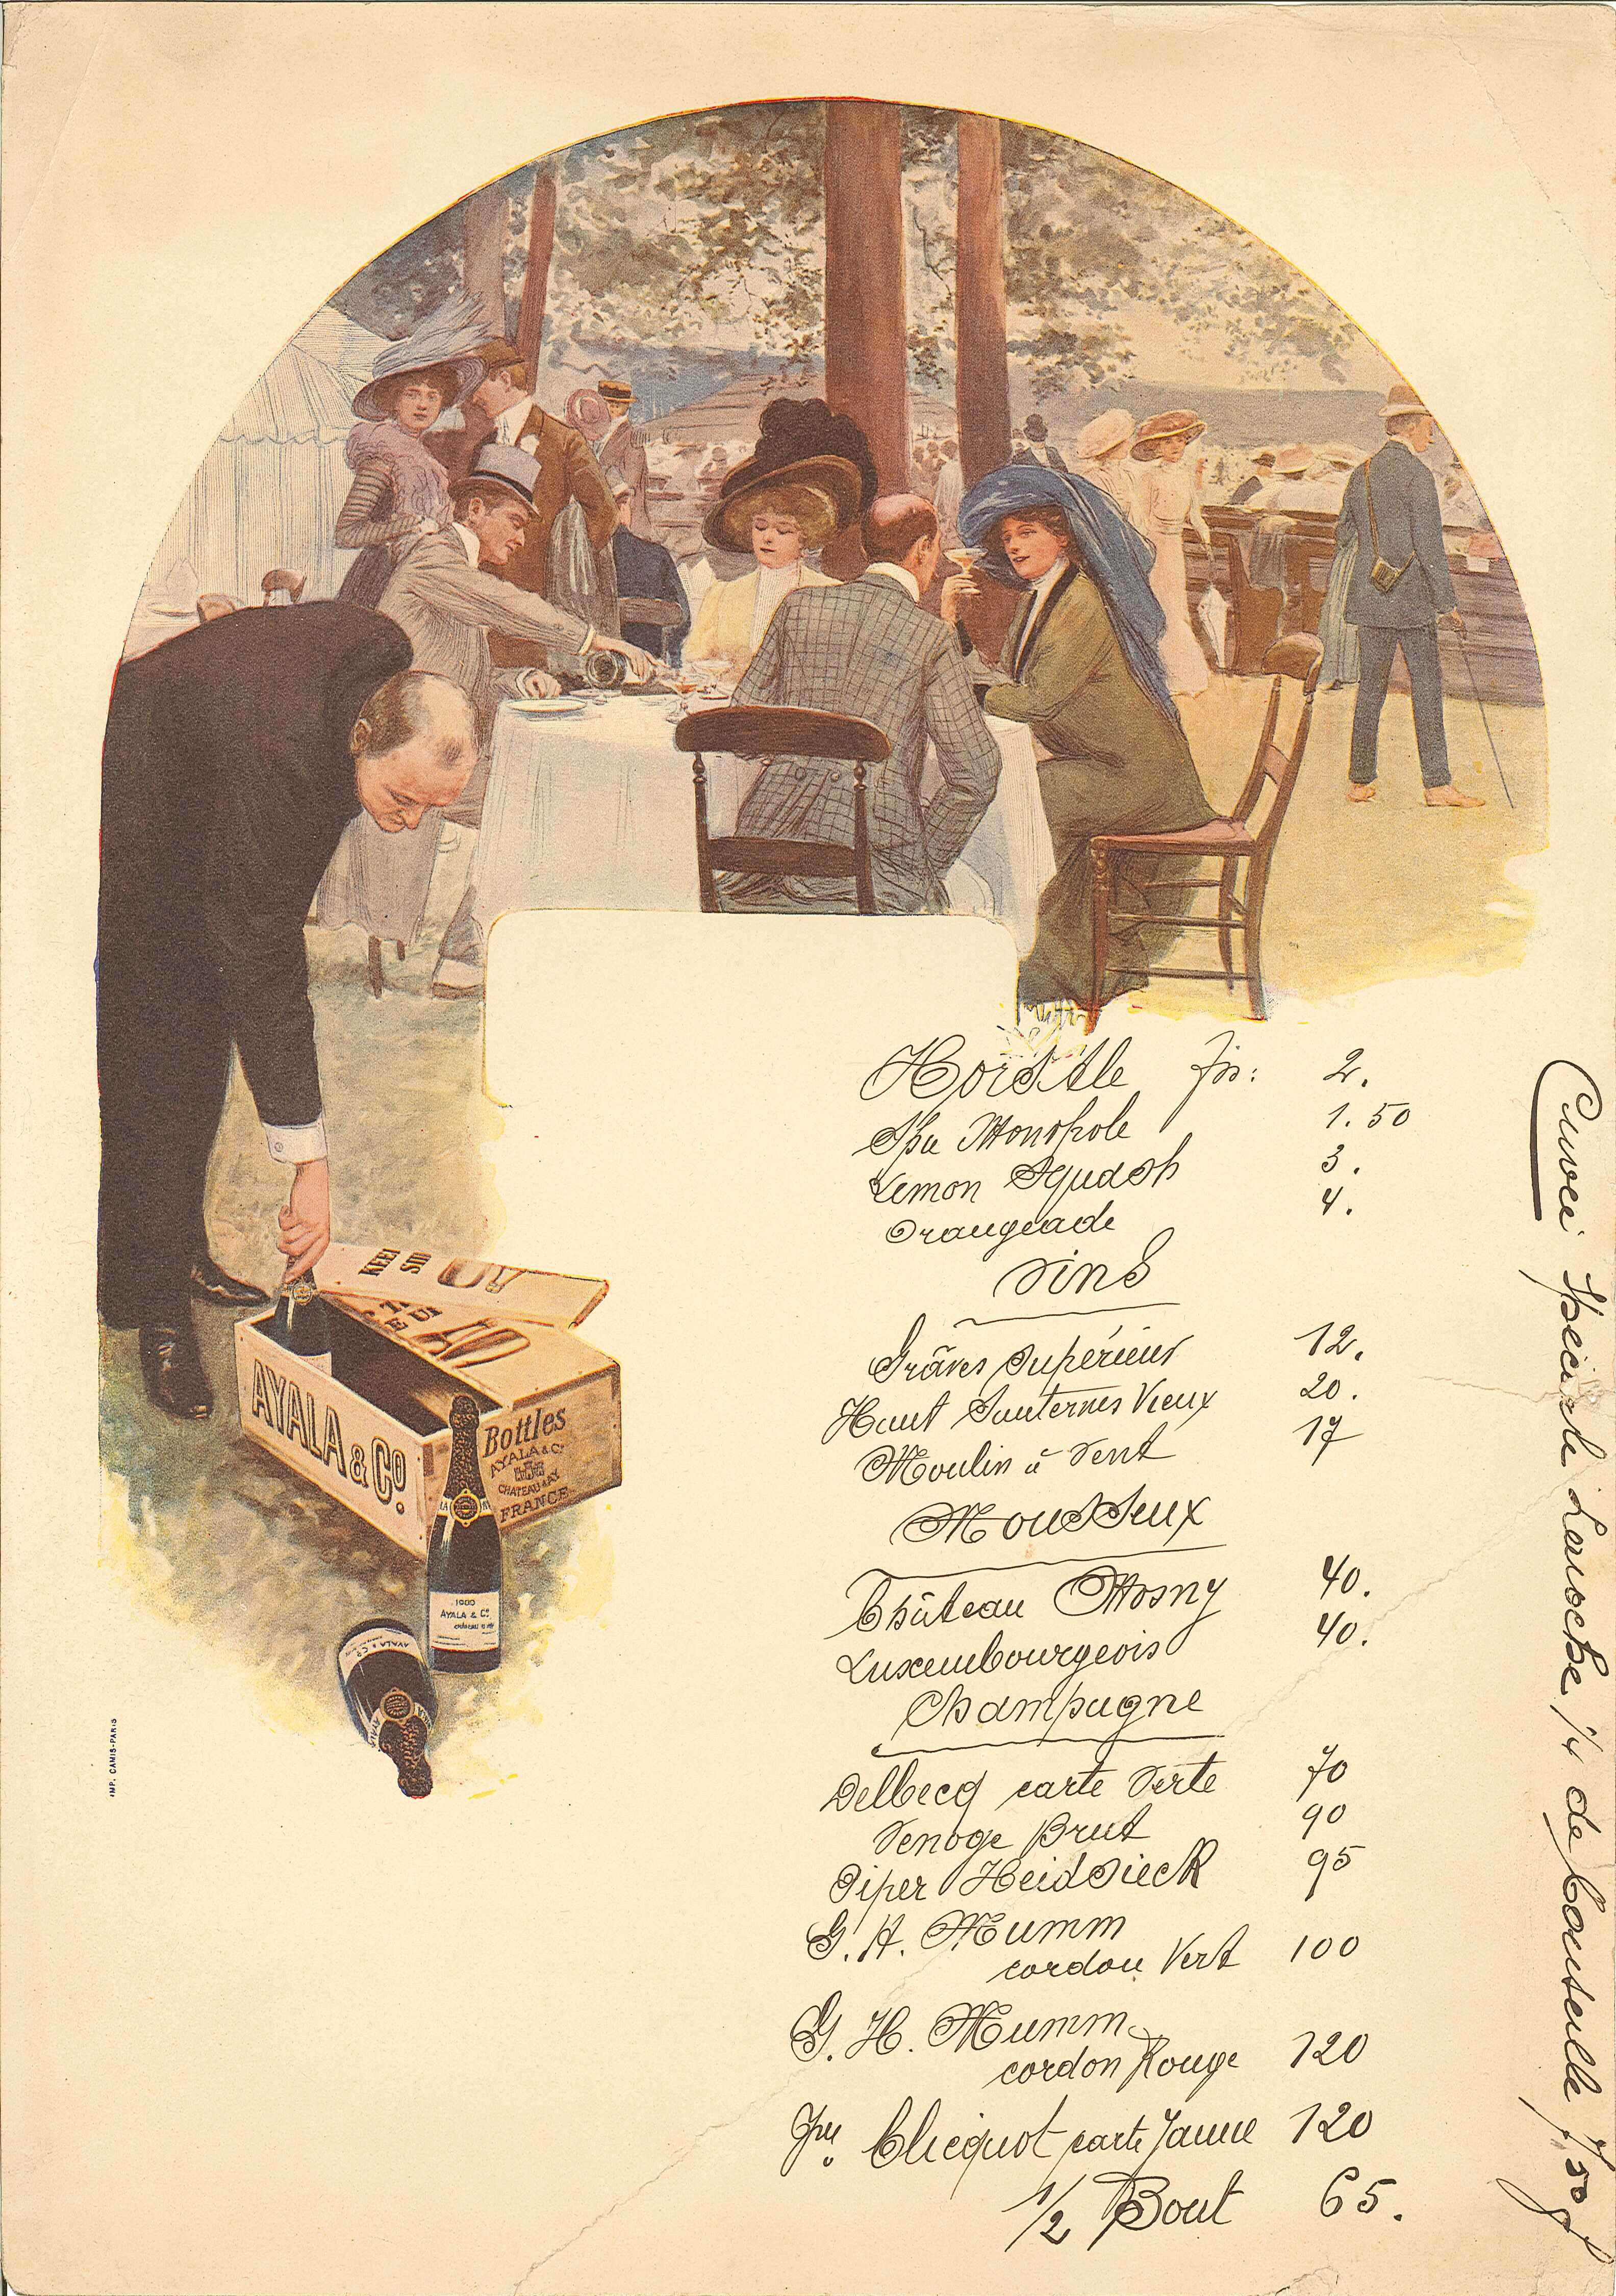 Horse Ale frs: 2.
Spa Monopole 1.50
Lemon Squash 3.
Orangeade 4.
Vins
Grâves Supérieur 12.
Haut Sauternes Vieux 20.
Moulin à Vent 17
Mousseux
Château Rosny 40.
Luxembourgeois 40.
Champagne
Delbecq carte Verte 70
Venoge Brut 90
Piper Heidsieck 95
G. H. Mumm
cordon Vert 100
G. H. Mumm
cordon Rouge 120
Clicquot carte Jaune 120
1/2 Bout 65.
Cuvée Spéciale 1/4 de bouteille 7,50 f
KEEP
AYALA & Co.
Bottles
AYALA & Co
CHATEAU D'AY
FRANCE
1900
AYALA & Co
CHATEAU D'AY
AYALA & Co
IMP. CAMIS-PARIS